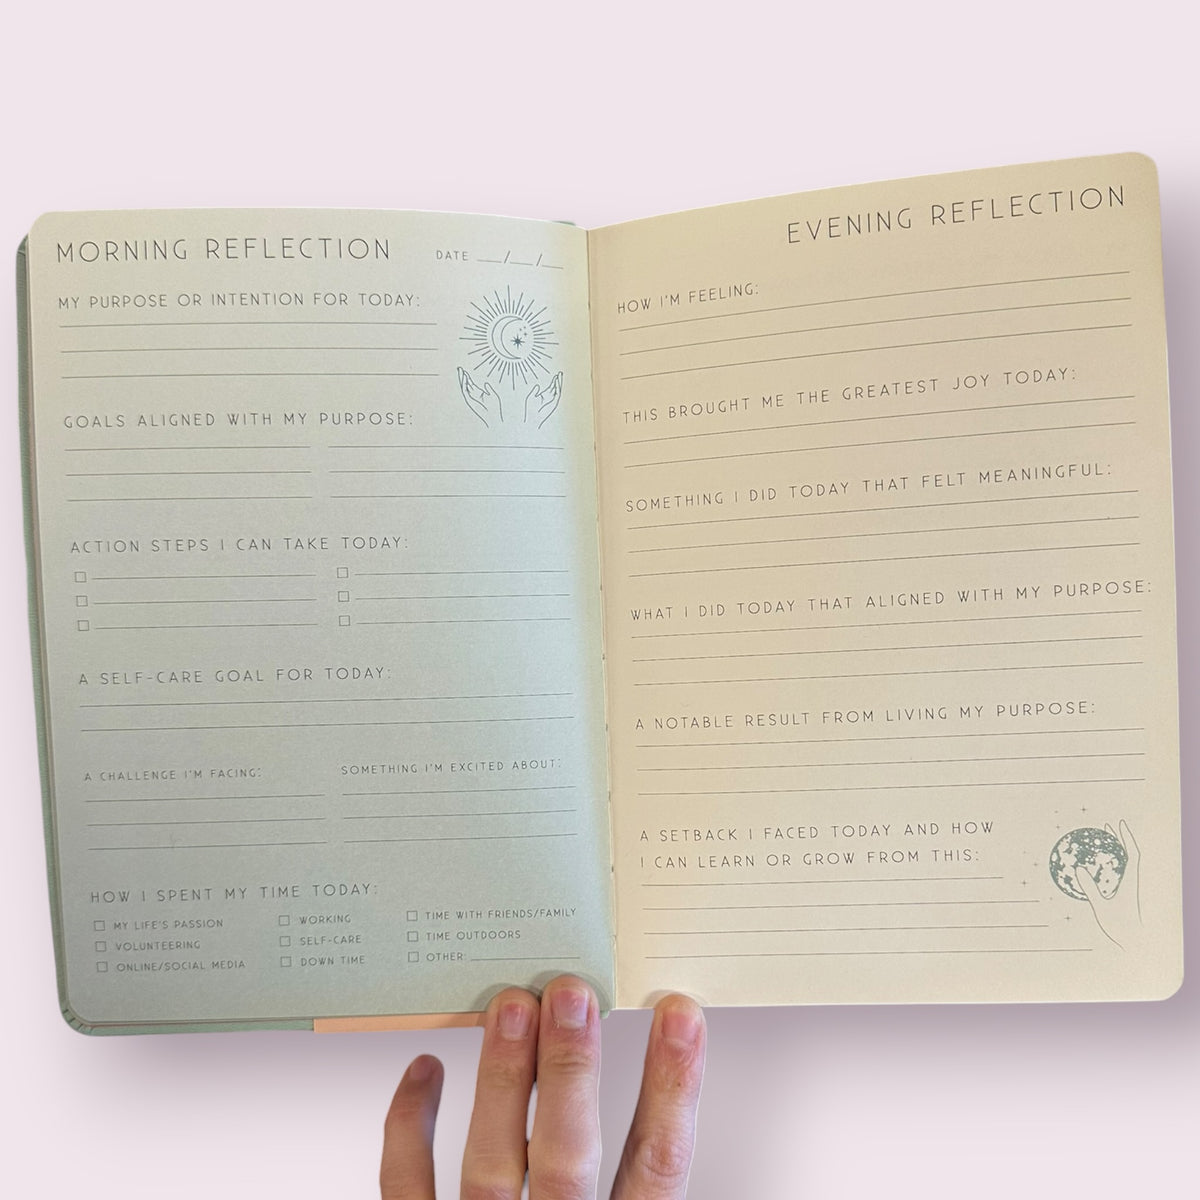 MORNING REFLECTION
DATE __/__/__
MY PURPOSE OR INTENTION FOR TODAY:
GOALS ALIGNED WITH MY PURPOSE:
ACTION STEPS I CAN TAKE TODAY:
A SELF-CARE GOAL FOR TODAY:
A CHALLENGE I'M FACING:
SOMETHING I'M EXCITED ABOUT:
HOW I SPENT MY TIME TODAY:
MY LIFE'S PASSION
VOLUNTEERING
ONLINE/SOCIAL MEDIA
WORKING
SELF-CARE
DOWN TIME
TIME WITH FRIENDS/FAMILY
TIME OUTDOORS
OTHER:
EVENING REFLECTION
HOW I'M FEELING:
THIS BROUGHT ME THE GREATEST JOY TODAY:
SOMETHING I DID TODAY THAT FELT MEANINGFUL:
WHAT I DID TODAY THAT ALIGNED WITH MY PURPOSE:
A NOTABLE RESULT FROM LIVING MY PURPOSE:
A SETBACK I FACED TODAY AND HOW
I CAN LEARN OR GROW FROM THIS: